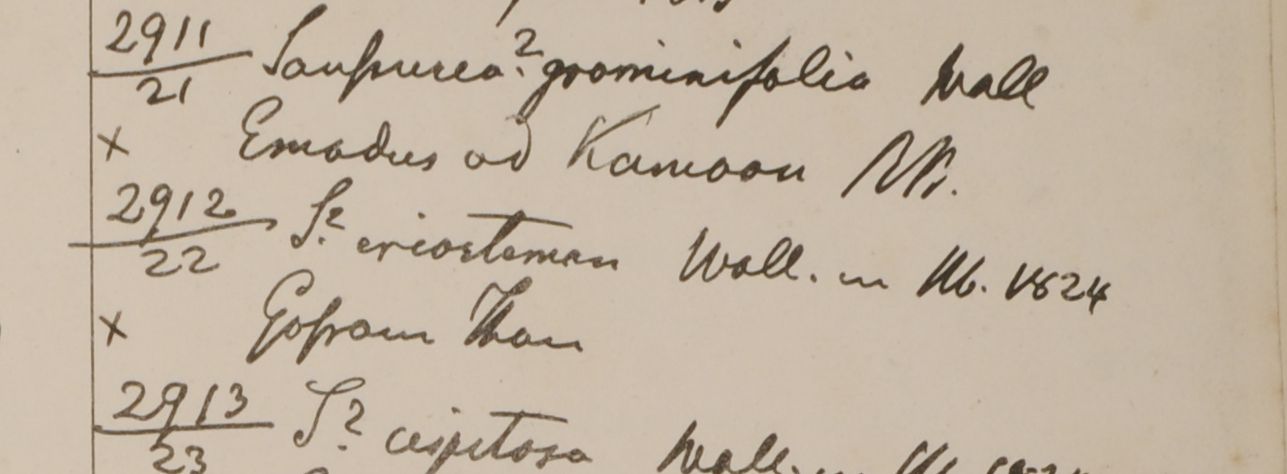 2911
21 Saussurea? graminifolia Wall
x Emodus ad Kamaon RB.
2912
22 S? eriostemon Wall. in Hb. 1824
x Gossain Than
2913
23 S? cespitosa Wall. in Hb.